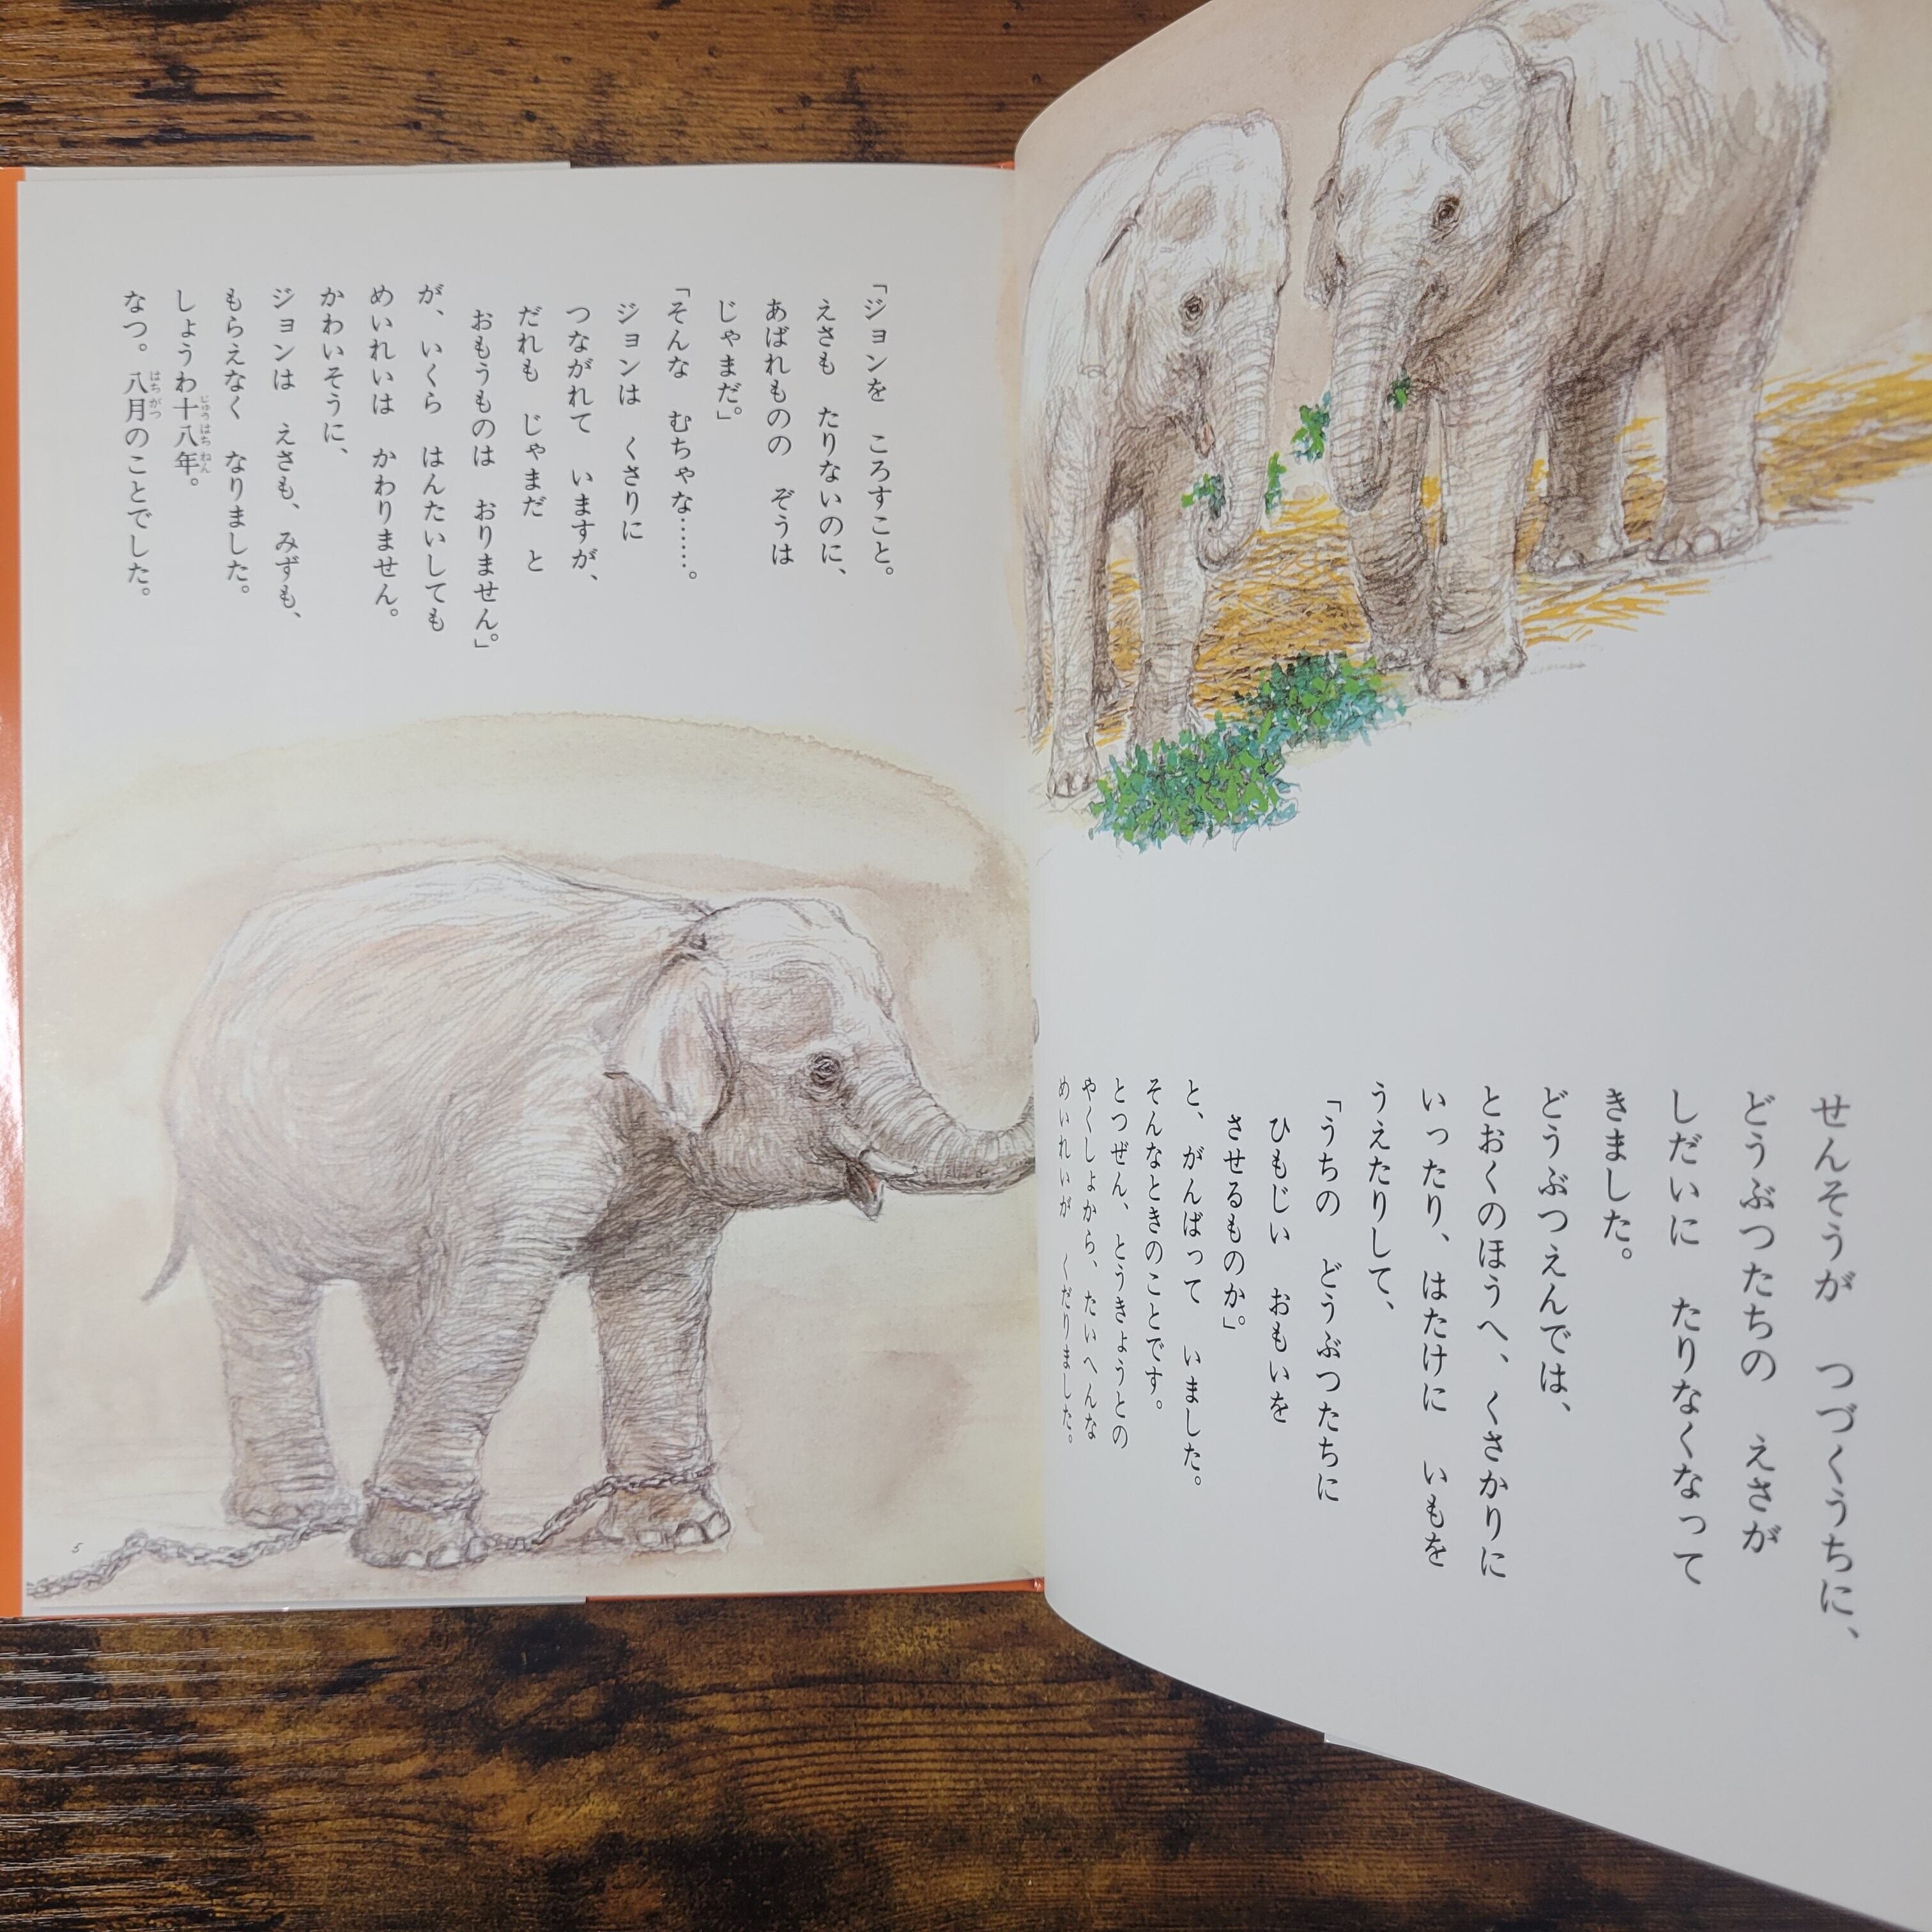 せんそうが　つづくうちに、
どうぶつたちの　えさが
しだいに　たりなくなって
きました。
どうぶつえんでは、
とおくのほうへ、くさかりに
いったり、はたけに　いもを
うえたりして、
「うちの　どうぶつたちに
ひもじい　おもいを
させるものか。」
と、がんばって　いました。
そんなときのことです。
とつぜん、とうきょうとの
やくしょから、たいへんな
めいれいが　くだりました。
「ジョンを　ころすこと。
えさも　たりないのに、
あばれものの　ぞうは
じゃまだ。」
「そんな　むちゃな……。
ジョンは　くさりに
つながれて　いますが、
だれも　じゃまだ　と
おもうものは　おりません。」
が、いくら　はんたいしても
めいれいは　かわりません。
かわいそうに、
ジョンは　えさも、みずも、
もらえなく　なりました。
しょうわ十八年。
じゅうはちねん
なつ。八月のことでした。
はちがつ
5